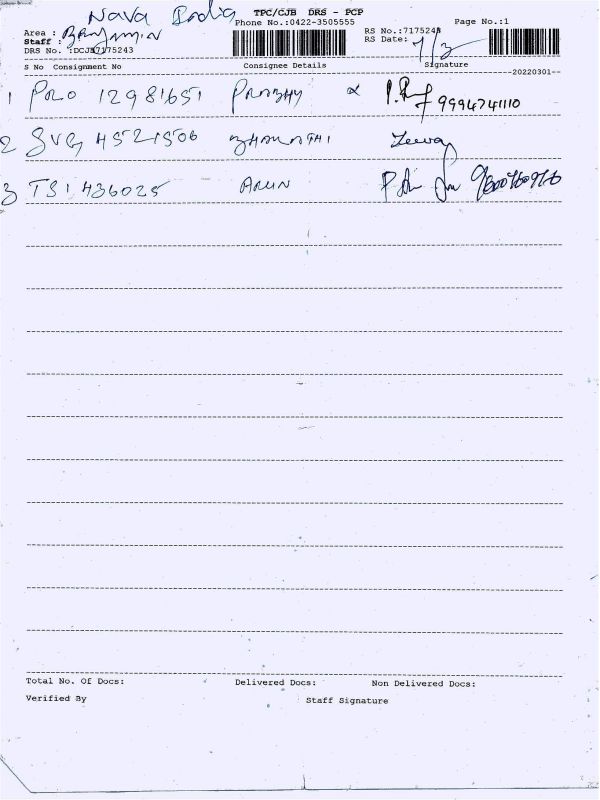 Nava India TPC/CJB DRS - PCP
Area : Phone No.:0422-3505555 Page No.:1
Staff : Benjamin RS No.:7175243
DRS No. :DCJB7175243 RS Date: 1/3
S No Consignment No Consignee Details Signature
--20220301--
1 PRO 12981651 PRABHU 9994741110
2 SVG 4521506 BHARATHI
3 TSI 436025 ARUN
Total No. Of Docs: Delivered Docs: Non Delivered Docs:
Verified By Staff Signature